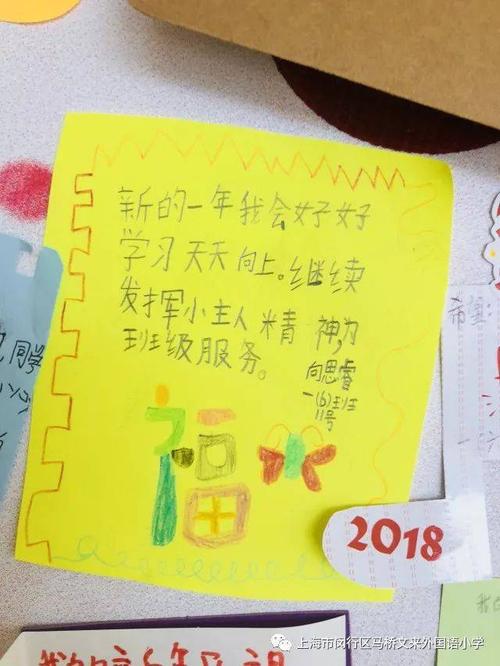 新的一年我会好好
学习天天向上。继续
发挥小主人精神,为
班级服务。
向思睿
一(6)班
11号
福
2018
同学
上海市闵行区马桥文来外国语小学